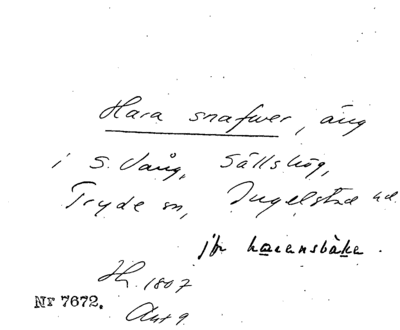 Hara snafwer, äng
i S. Vång, Sällshög,
Tryde sn, Ingelstad hd.
jfr haransbàka.
H. 1807
Nr 7672.
Akt 9